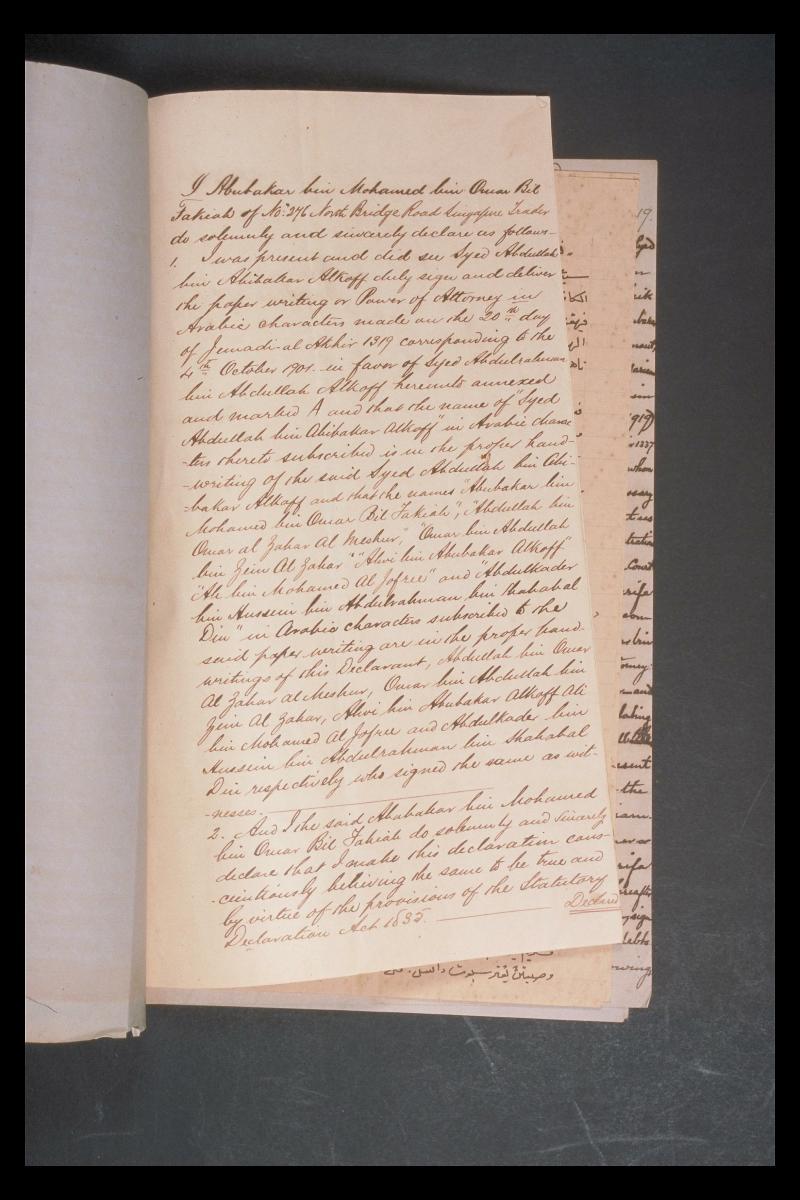 I Abubakar bin Mohamed bin Omar Bil
Fakiah of No: 276 North Bridge Road Singapore Trader
do solemnly and sincerely declare as follows-
1. I was present and did see Syed Abdullah
bin Abibakar Alkoff duly sign and deliver
the paper writing or Power of Attorney in
Arabic characters made on the 20th day
of Jemadi-al Akhir 1319 corresponding to the
4th October 1901 in favor of Syed Abdulrahman
bin Abdullah Alkoff hereunto annexed
and marked A and that the name of "Syed
Abdullah bin Abibakar Alkoff" in Arabic charac
-ters thereto subscribed is in the proper hand-
-writing of the said Syed Abdullah bin Abi-
-bakar Alkoff and that the names "Abubakar bin
Mohamed bin Omar Bil Fakiah", "Abdullah bin
Omar al Zahar Al Meshur," "Omar bin Abdullah
bin Zein Al Zahar" "Alwi bin Abubakar Alkoff"
"Ali bin Mohamed Al Jofree" and "Abdulkader
bin Hussein bin Abdulrahman bin Shahabal
Din" in Arabic characters subscribed to the
said paper writing are in the proper hand-
writings of this Declarant, Abdullah bin Omar
Al Zahar al Meshur, Omar bin Abdullah bin
Zein Al Zahar, Alwi bin Abubakar Alkoff Ali
bin Mohamed Al Jofree and Abdulkader bin
Hussein bin Abdulrahman bin Shahabal
Din respectively who signed the same as wit-
-nesses.
2. And I the said Abubakar bin Mohamed
bin Omar Bil Fakiah do solemnly and sincerely
declare that I make this declaration cons-
-cientiously believing the same to be true and
by virtue of the provisions of the Statutory
Declaration Act 1835.
Declared
19.
1337
whom
Court
the
debts